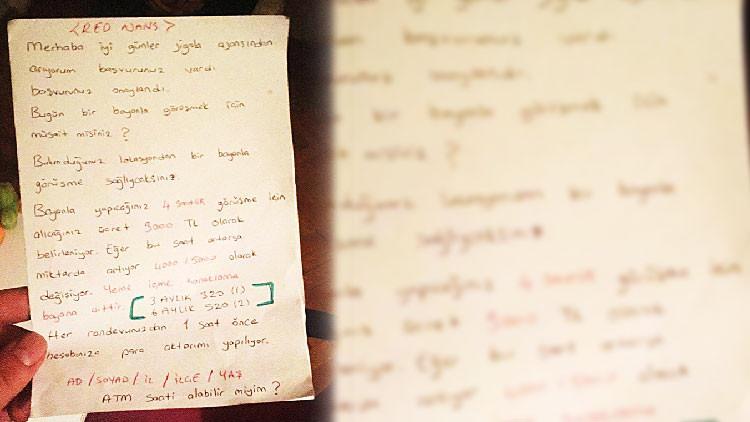 <RED AJANS>
Merhaba iyi günler jigolo ajansından
arıyorum başvurunuz vardı
başvurunuz onaylandı.
Bugün bir bayanla görüşmek için
müsait misiniz ?
Bulunduğunuz lokasyondan bir bayanla
görüşme sağlıycaksınız.
Bayanla yapıcağınız 4 saatlik görüşme için
alıcağınız ücret 3000 TL olarak
belirleniyor. Eğer bu saat artarsa
miktarda artıyor 4000 / 5000 olarak
değişiyor. Yeme içme konaklama
bayana aittir. [ 3 AYLIK 320 (1)
6 AYLIK 520 (2) ]
Her randevunuzdan 1 saat önce
hesabınıza para aktarımı yapılıyor.
AD / SOYAD / İL / İLÇE / YAŞ
ATM saati alabilir miyim ?